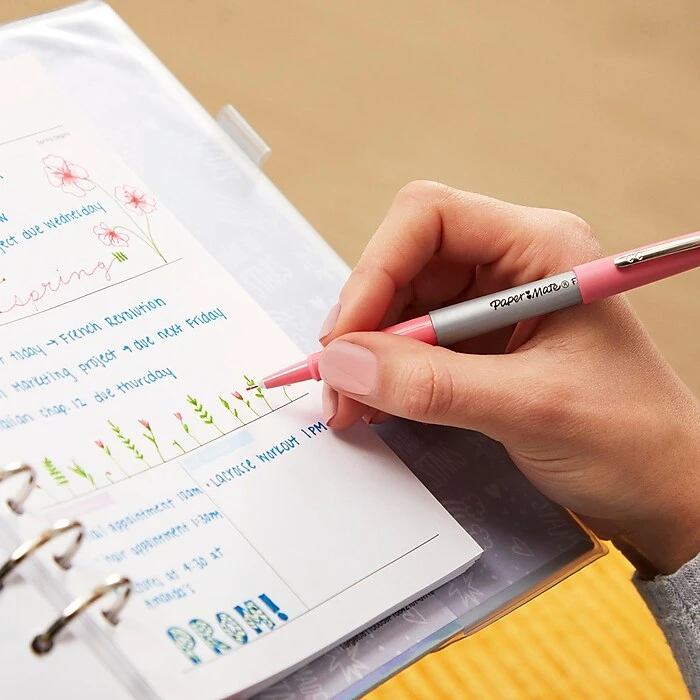 ject due Wednesday
spring
Friday → French Revolution
Marketing project → due next Friday
Italian chap. 12 due thursday
• Lacrosse Workout 1PM
appointment 10am
hair appointment 1:30pm
at 4:30 at
Amanda's
PROM!
Paper Mate® F